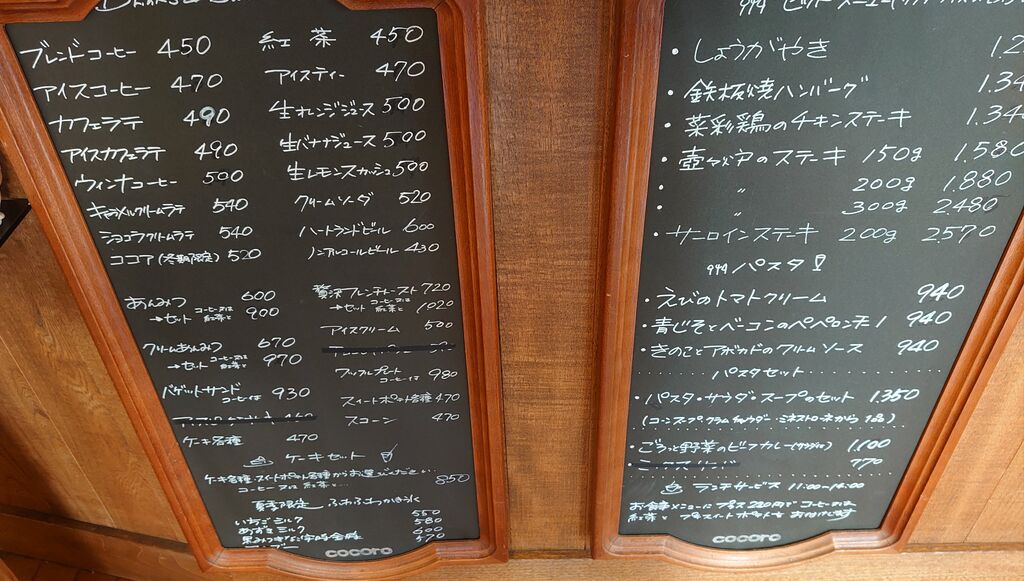 ブレンドコーヒー 450
アイスコーヒー 470
カフェラテ 490
アイスカフェラテ 490
ウィンナコーヒー 500
キャラメルクリームラテ 540
ショコラクリームラテ 540
ココア(冬期限定) 520
紅茶 450
アイスティー 470
生オレンジジュース 500
生バナナジュース 500
生レモンスカッシュ 500
クリームソーダ 520
ハートランドビール 600
ノンアルコールビール 430
あんみつ 600
→セット コーヒー又は紅茶と 900
クリームあんみつ 670
→セット コーヒー又は紅茶と 970
バゲットサンド コーヒー付 930
ケーキ各種 470
贅沢フレンチトースト 720
→セット コーヒー又は紅茶と 1020
アイスクリーム 500
ワッフルプレート コーヒー付 980
スイートポテト各種 470
スコーン 470
ケーキセット
ケーキ各種・スイートポテト各種からお選びください
コーヒー又は紅茶 850
夏季限定 ふわふわかき氷
いちごミルク 550
あずきミルク 580
cocoro
・しょうがやき
・鉄板焼ハンバーグ
・菜彩鶏のチキンステーキ
のステーキ 150g 1.580
・ 〃 200g 1.880
・ 〃 300g 2.480
・サーロインステーキ 200g 2570
パスタ
・えびのトマトクリーム 940
・青じそとベーコンのペペロンチーノ 940
・きのことアボカドのクリームソース 940
パスタセット
・パスタ・サラダ・スープのセット 1.350
(コーンスープ・クラムチャウダー・ミネストローネから1品)
・ごろっと野菜のビーフカレー(サラダ付) 1.100
770
ランチサービス 11:00-16:00
お食事メニューにプラス220円でコーヒー又は
紅茶とプチスイートポテトをお付けします
cocoro